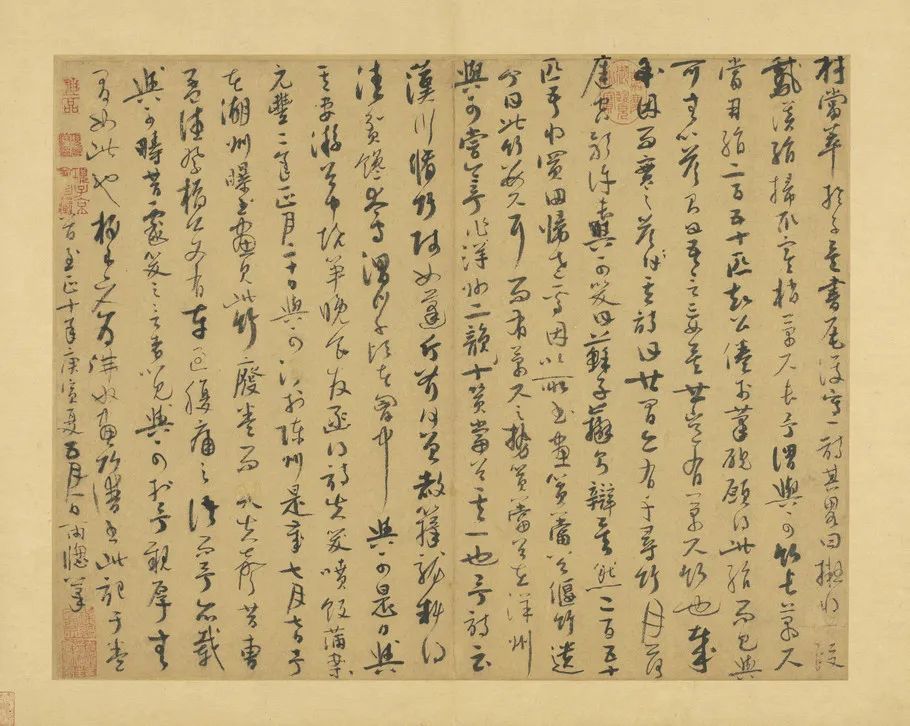 材當萃於子矣書尾復寫一詩其略曰擬將一段
鵝溪絹掃取寒梢萬尺長予謂與可竹長萬尺
當用絹二百五十匹知公倦於筆硯願得此絹而已與
可無以答則曰吾言妄矣世豈有萬尺竹也哉
余因而實之答其詩曰世間亦有千尋竹月落
庭空影許長與可笑曰蘇子辯則辯矣然二百五十
匹吾將買田歸老焉因以所畫篔簹谷偃竹遺
予曰此竹數尺耳而有萬尺之勢篔簹谷在洋州
與可嘗令予作洋州二韻十篔簹谷其一也予詩云
漢川脩竹賤如蓬斤斧何曾赦籜龍料得
清貧饞太守渭川千畝在胸中與可是日與
其妻游谷中燒筍晚食發函得詩失笑噴飯滿案
元豐二年正月二十日與可沒於陳州是歲七月七日予
在湖州曝書畫見此竹廢卷而哭失聲昔曹
孟德祭橋公文有車過腹痛之語而予亦載
與可疇昔戲笑之言者以見與可於予親厚無
間如此也梅道人爲佛奴畫竹譜書此記于卷
首至正十年庚寅夏五月一日雨牕筆